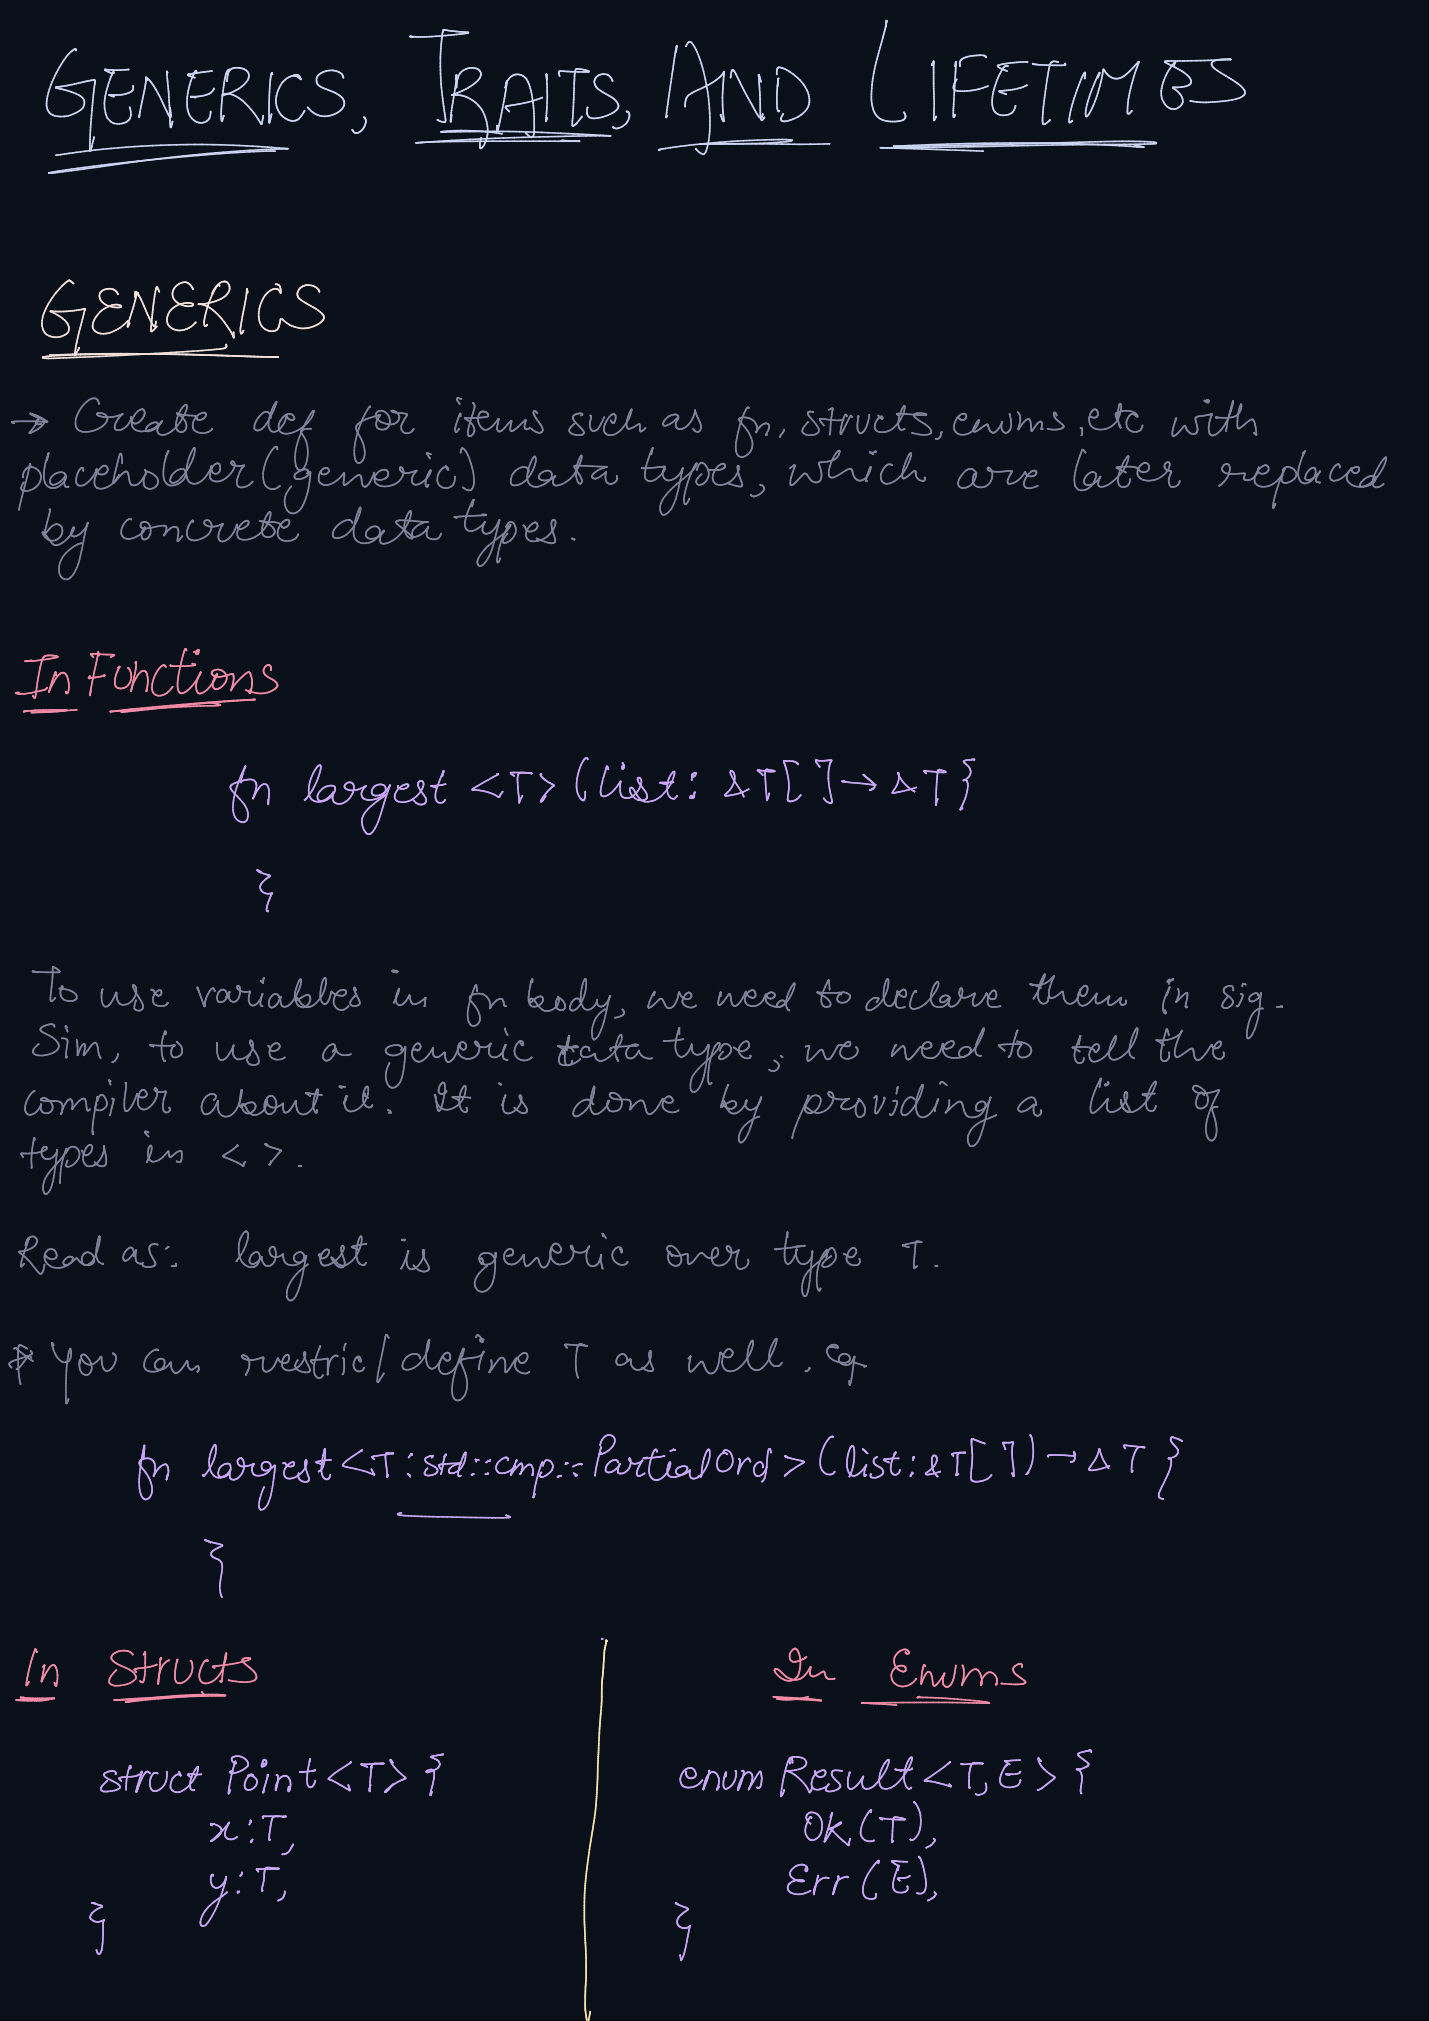 GENERICS, TRAITS, AND LIFETIMES
GENERICS
→ Create def for items such as fn, structs, enums, etc with
placeholder (generic) data types, which are later replaced
by concrete data types.
In Functions
fn largest <T> (list: &T[] → &T {
}
To use variables in fn body, we need to declare them in sig.
Sim, to use a generic data type, we need to tell the
compiler about it. It is done by providing a list of
types in < >.
Read as: largest is generic over type T.
* You can restric/define T as well. eg
fn largest <T: std::cmp::PartialOrd> (list: &T[]) → &T {
}
In Structs
struct Point <T> {
x: T,
y: T,
}
In Enums
enum Result <T, E> {
Ok (T),
Err (E),
}